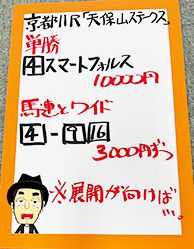 京都11R「天保山ステークス」
単勝
4スマートフォルス
10000円
馬連とワイド
4-9,16
3000円ずつ
※展開が向けば…。